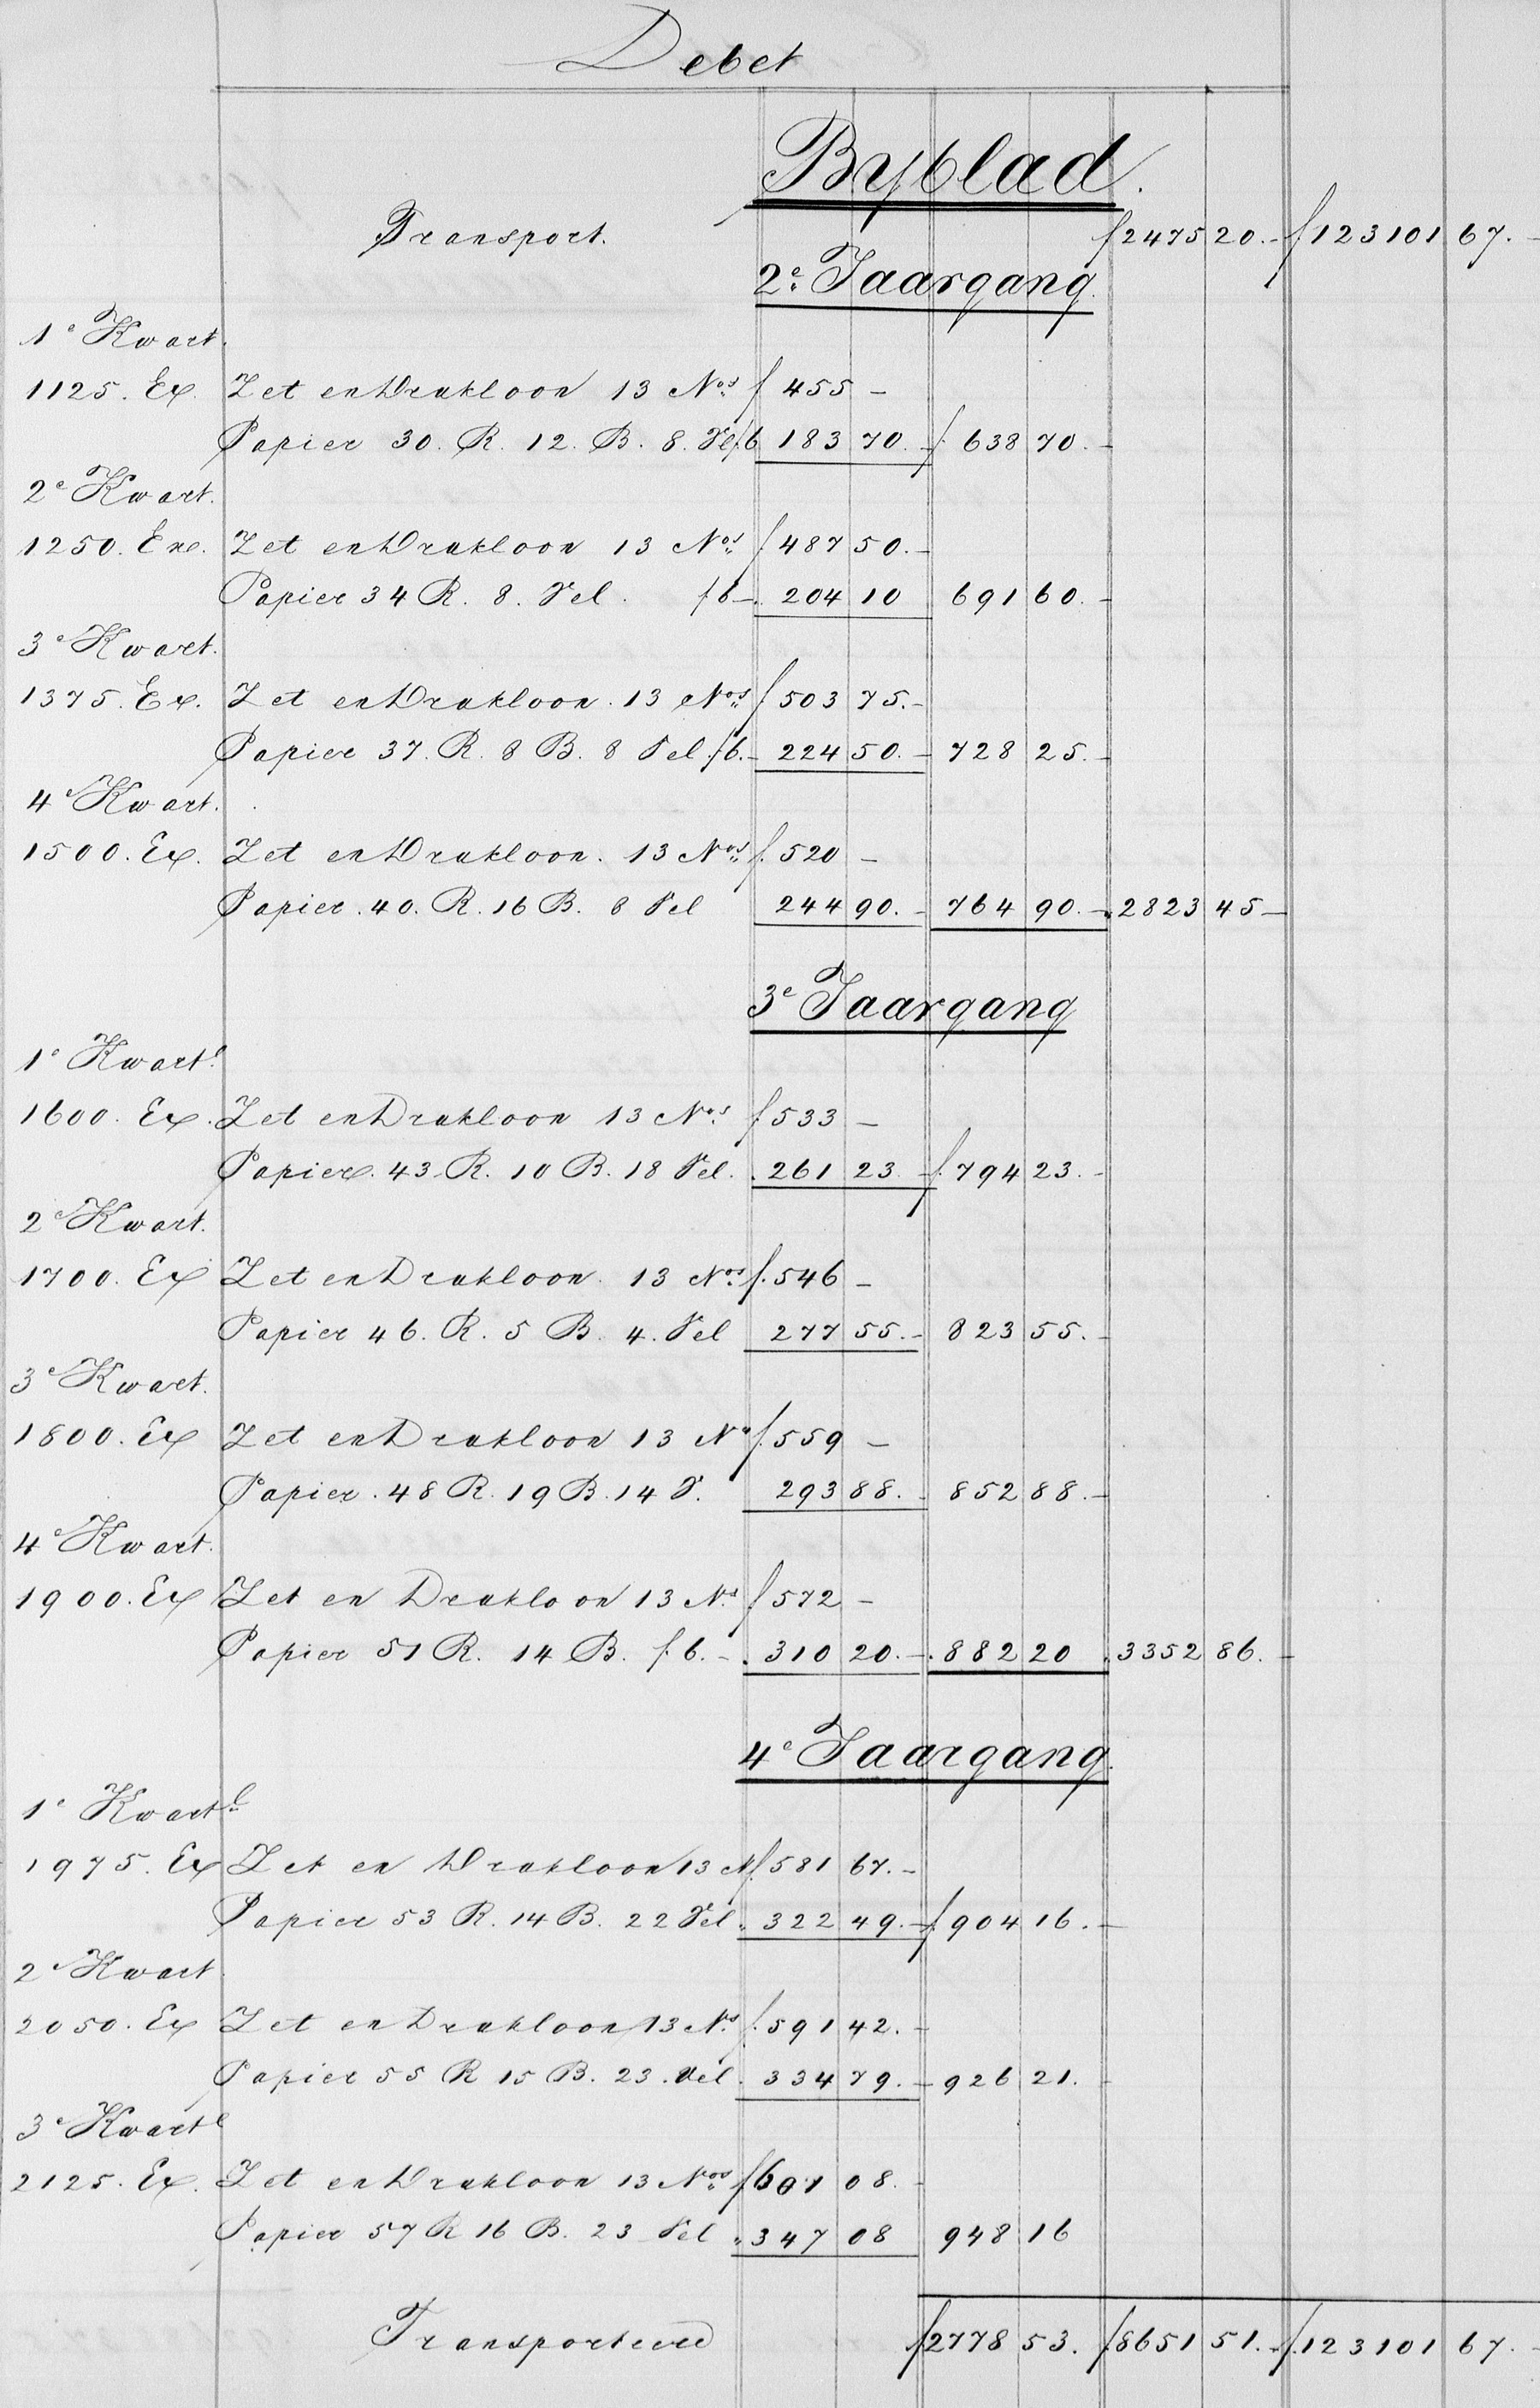 Debet
Byblad.
Transport. f 2475 20.- f 123101 67.-
2e Jaargang
1e Kwart.
1125. Ex. Zet en Drukloon 13 Nos f 455 -
Papier 30. R. 12. B. 8. Vel f6 183 70.- f 638 70.-
2e Kwart.
1250. Exe. Zet en Drukloon 13 Nos f 487 50.-
Papier 34 R. 8. Vel. f6-. 204 10 691 60.-
3e Kwart.
1375. Ex. Zet en Drukloon. 13 Nos f 503 75.-
Papier 37. R. 8 B. 8 Vel f6.- 224 50.- 728 25.-
4e Kwart.
1500. Ex. Zet en Drukloon. 13 Nos f. 520 -
Papier. 40. R. 16 B. 8 Vel 244 90.- 764 90.- 2823 45-
3e Jaargang
1e Kwartl
1600. Ex. Zet en Drukloon 13 Nos f. 533 -
Papier. 43 R. 10 B. 18 Vel. 261 23.- f. 794 23.-
2e Kwart.
1700. Ex Zet en Drukloon. 13 Nos f. 546 -
Papier 46. R. 5 B. 4. Vel 277 55.- 823 55.-
3e Kwart.
1800. Ex Zet en Drukloon 13 No f. 559 -
Papier. 48 R. 19 B. 14 V. 293 88.- 852 88.-
4e Kwart.
1900. Ex Zet en Drukloon 13 Ns f 572 -
Papier 51 R. 14 B. f. 6.- 310 20.- 882 20 3352 86.-
4e Jaargang
1e Kwartl
1975. Ex Zet en Drukloon 13 N f. 581 67.-
Papier 53 R. 14 B. 22 Vel „ 322 49.- f. 904 16.-
2e Kwart
2050. Ex Zet en Drukloon 13 Ns f. 591 42.-
Papier 55 R 15 B. 23. Vel. 334 79.- 926 21.-
3e Kwartl
2125. Ex. Zet en Drukloon 13 Nos f 601 08.-
Papier 57 R 16 B. 23 Vel „ 347 08 948 16
Transporteere f 2778 53. f 8651 51.- f. 123101 67.-